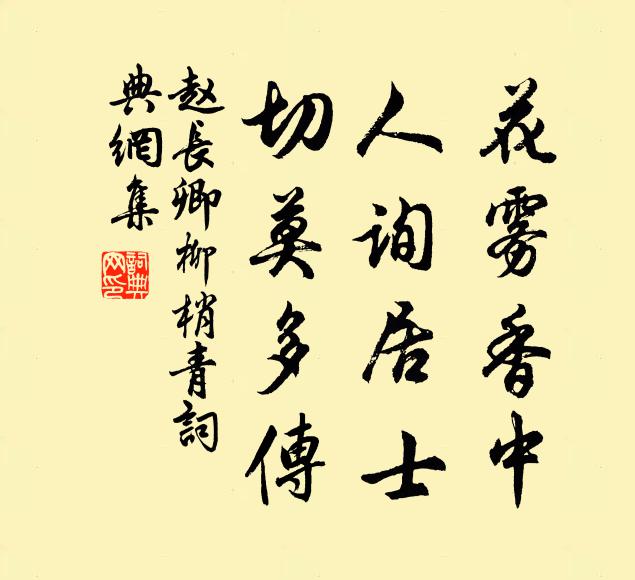 花雾香中
人询居士
切莫多傳
赵長卿柳梢青詞
典網集
詞典
网印